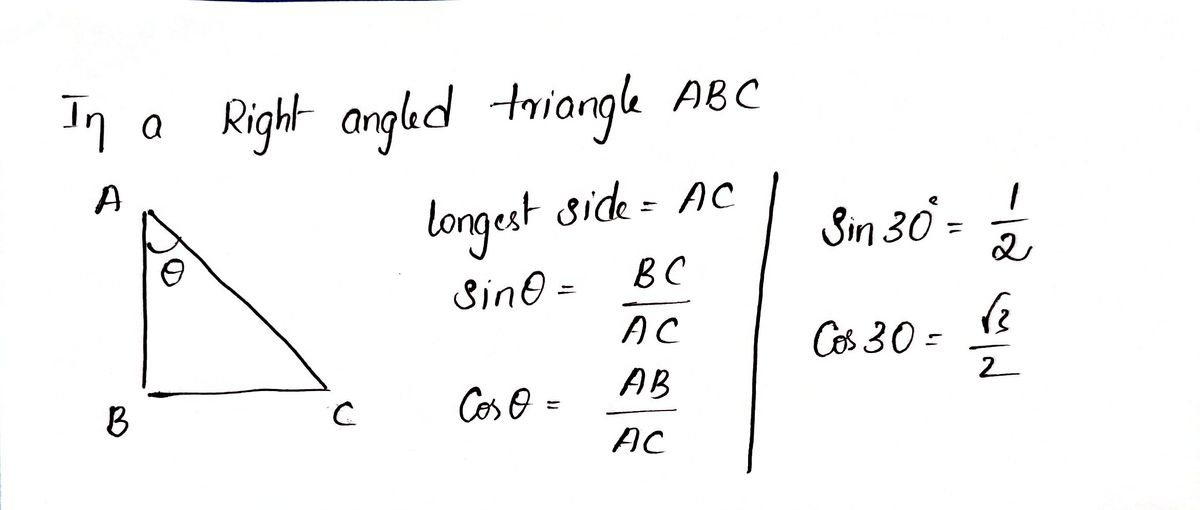 In a Right angled triangle ABC
A
θ
B
C
longest side = AC
sinθ = BC/AC
Cosθ = AB/AC
Sin 30° = 1/2
Cos 30 = √3/2